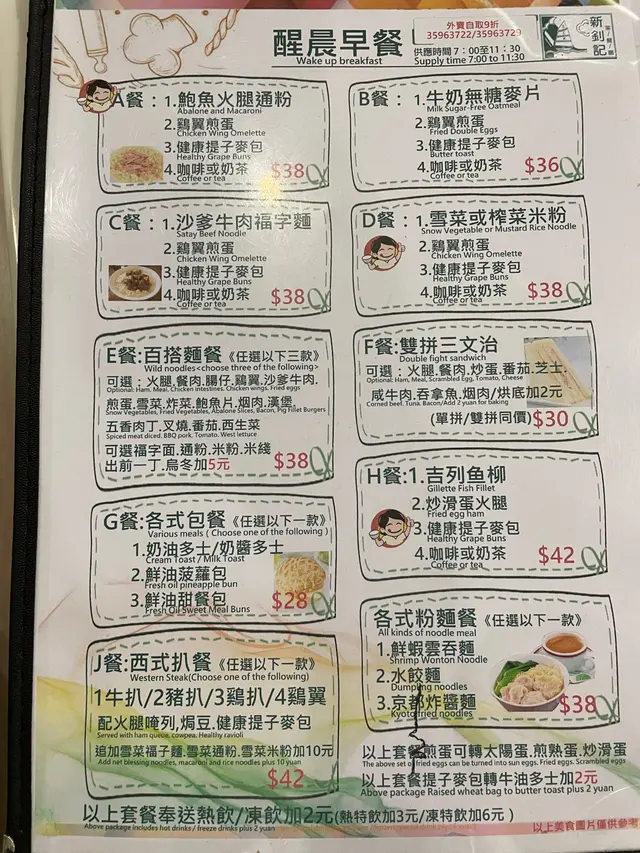 醒晨早餐
Wake up breakfast
外賣自取9折
35963722/35963729
供應時間 7:00至11:30
Supply time 7:00 to 11:30
新釗記
A餐:1.鮑魚火腿通粉
Abalone and Macaroni
2.鷄翼煎蛋
Chicken Wing Omelette
3.健康提子麥包
Healthy Grape Buns
4.咖啡或奶茶
Coffee or tea
$38
B餐:1.牛奶無糖麥片
Milk Sugar-Free Oatmeal
2.鷄翼煎蛋
Fried Double Eggs
3.健康提子麥包
Butter toast
4.咖啡或奶茶
Coffee or tea
$36
C餐:1.沙爹牛肉福字麵
Satay Beef Noodle
2.鷄翼煎蛋
Chicken Wing Omelette
3.健康提子麥包
Healthy Grape Buns
4.咖啡或奶茶
Coffee or tea
$38
D餐:1.雪菜或榨菜米粉
Snow Vegetable or Mustard Rice Noodle
2.鷄翼煎蛋
Chicken Wing Omelette
3.健康提子麥包
Healthy Grape Buns
4.咖啡或奶茶
Coffee or tea
$38
E餐:百搭麵餐《任選以下三款》
Wild noodles<choose three of the following>
可選:火腿.餐肉.腸仔.鷄翼.沙爹牛肉.
Optional: Ham, Meal, Chicken intestines. Chicken wings, Fried eggs
煎蛋.雪菜.炸菜.鮑魚片.烟肉.漢堡.
Snow Vegetables, Fried Vegetables, Abalone Slices, Bacon, Pig Fillet Burgers
五香肉丁.叉燒.番茄.西生菜
Spiced meat diced. BBQ pork. Tomato. West lettuce
可選福字面.通粉.米粉.米綫
出前一丁.烏冬加5元
$38
F餐:雙拼三文治
Double fight sandwich
可選:火腿.餐肉.炒蛋.番茄.芝士.
Optional: Ham, Meal, Scrambled Egg, Tomato, Cheese
咸牛肉.吞拿魚.烟肉/烘底加2元
Corned beef. Tuna. Bacon/Add 2 yuan for baking
(單拼/雙拼同價)$30
G餐:各式包餐《任選以下一款》
Various meals ( Choose one of the following )
1.奶油多士/奶醬多士
Cream Toast / Milk Toast
2.鮮油菠蘿包
Fresh oil pineapple bun
3.鮮油甜餐包
Fresh Oil Sweet Meal Buns
$28
H餐:1.吉列鱼柳
Gillette Fish Fillet
2.炒滑蛋火腿
Fried egg ham
3.健康提子麥包
Healthy Grape Buns
4.咖啡或奶茶
Coffee or tea
$42
J餐:西式扒餐《任選以下一款》
Western Steak(Choose one of the following)
1牛扒/2豬扒/3鷄扒/4鷄翼
配火腿唵列,焗豆.健康提子麥包
Served with ham queue, cowpea, Healthy ravioli
追加雪菜福子麵.雪菜通粉.雪菜米粉加10元
Add net blessing noodles, macaroni and rice noodles plus 10 yuan
$42
各式粉麵餐《任選以下一款》
All kinds of noodle meal
1.鮮蝦雲吞麵
Shrimp Wonton Noodle
2.水餃麵
Dumpling noodles
3.京都炸醬麵
Kyoto fried noodles
$38
以上套餐煎蛋可轉太陽蛋.煎熟蛋.炒滑蛋
The above set of fried eggs can be turned into sun eggs. Fried eggs. Scrambled eggs
以上套餐提子麥包轉牛油多士加2元
Above package Raised wheat bag to butter toast plus 2 yuan
以上套餐奉送熱飲/凍飲加2元(熱特飲加3元/凍特飲加6元)
Above package includes hot drinks / freeze drinks plus 2 yuan
以上美食圖片僅供參考